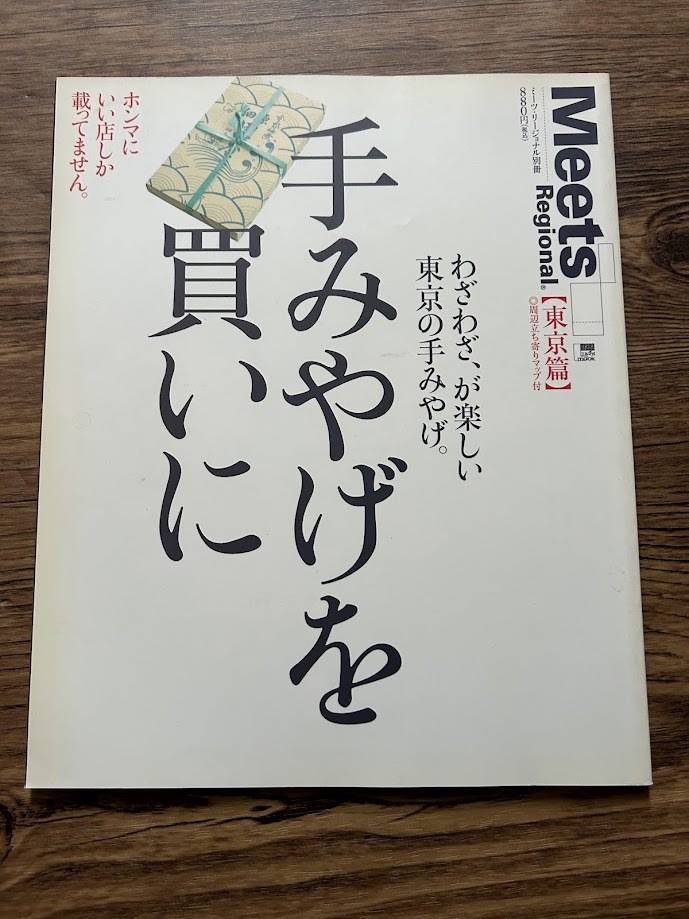 Meets
Regional®
ミーツ・リージョナル別冊
880円(税込)
【東京篇】
◎周辺立ち寄りマップ付
わざわざ、が楽しい
東京の手みやげ。
手みやげを
買いに
ホンマに
いい店しか
載ってません。